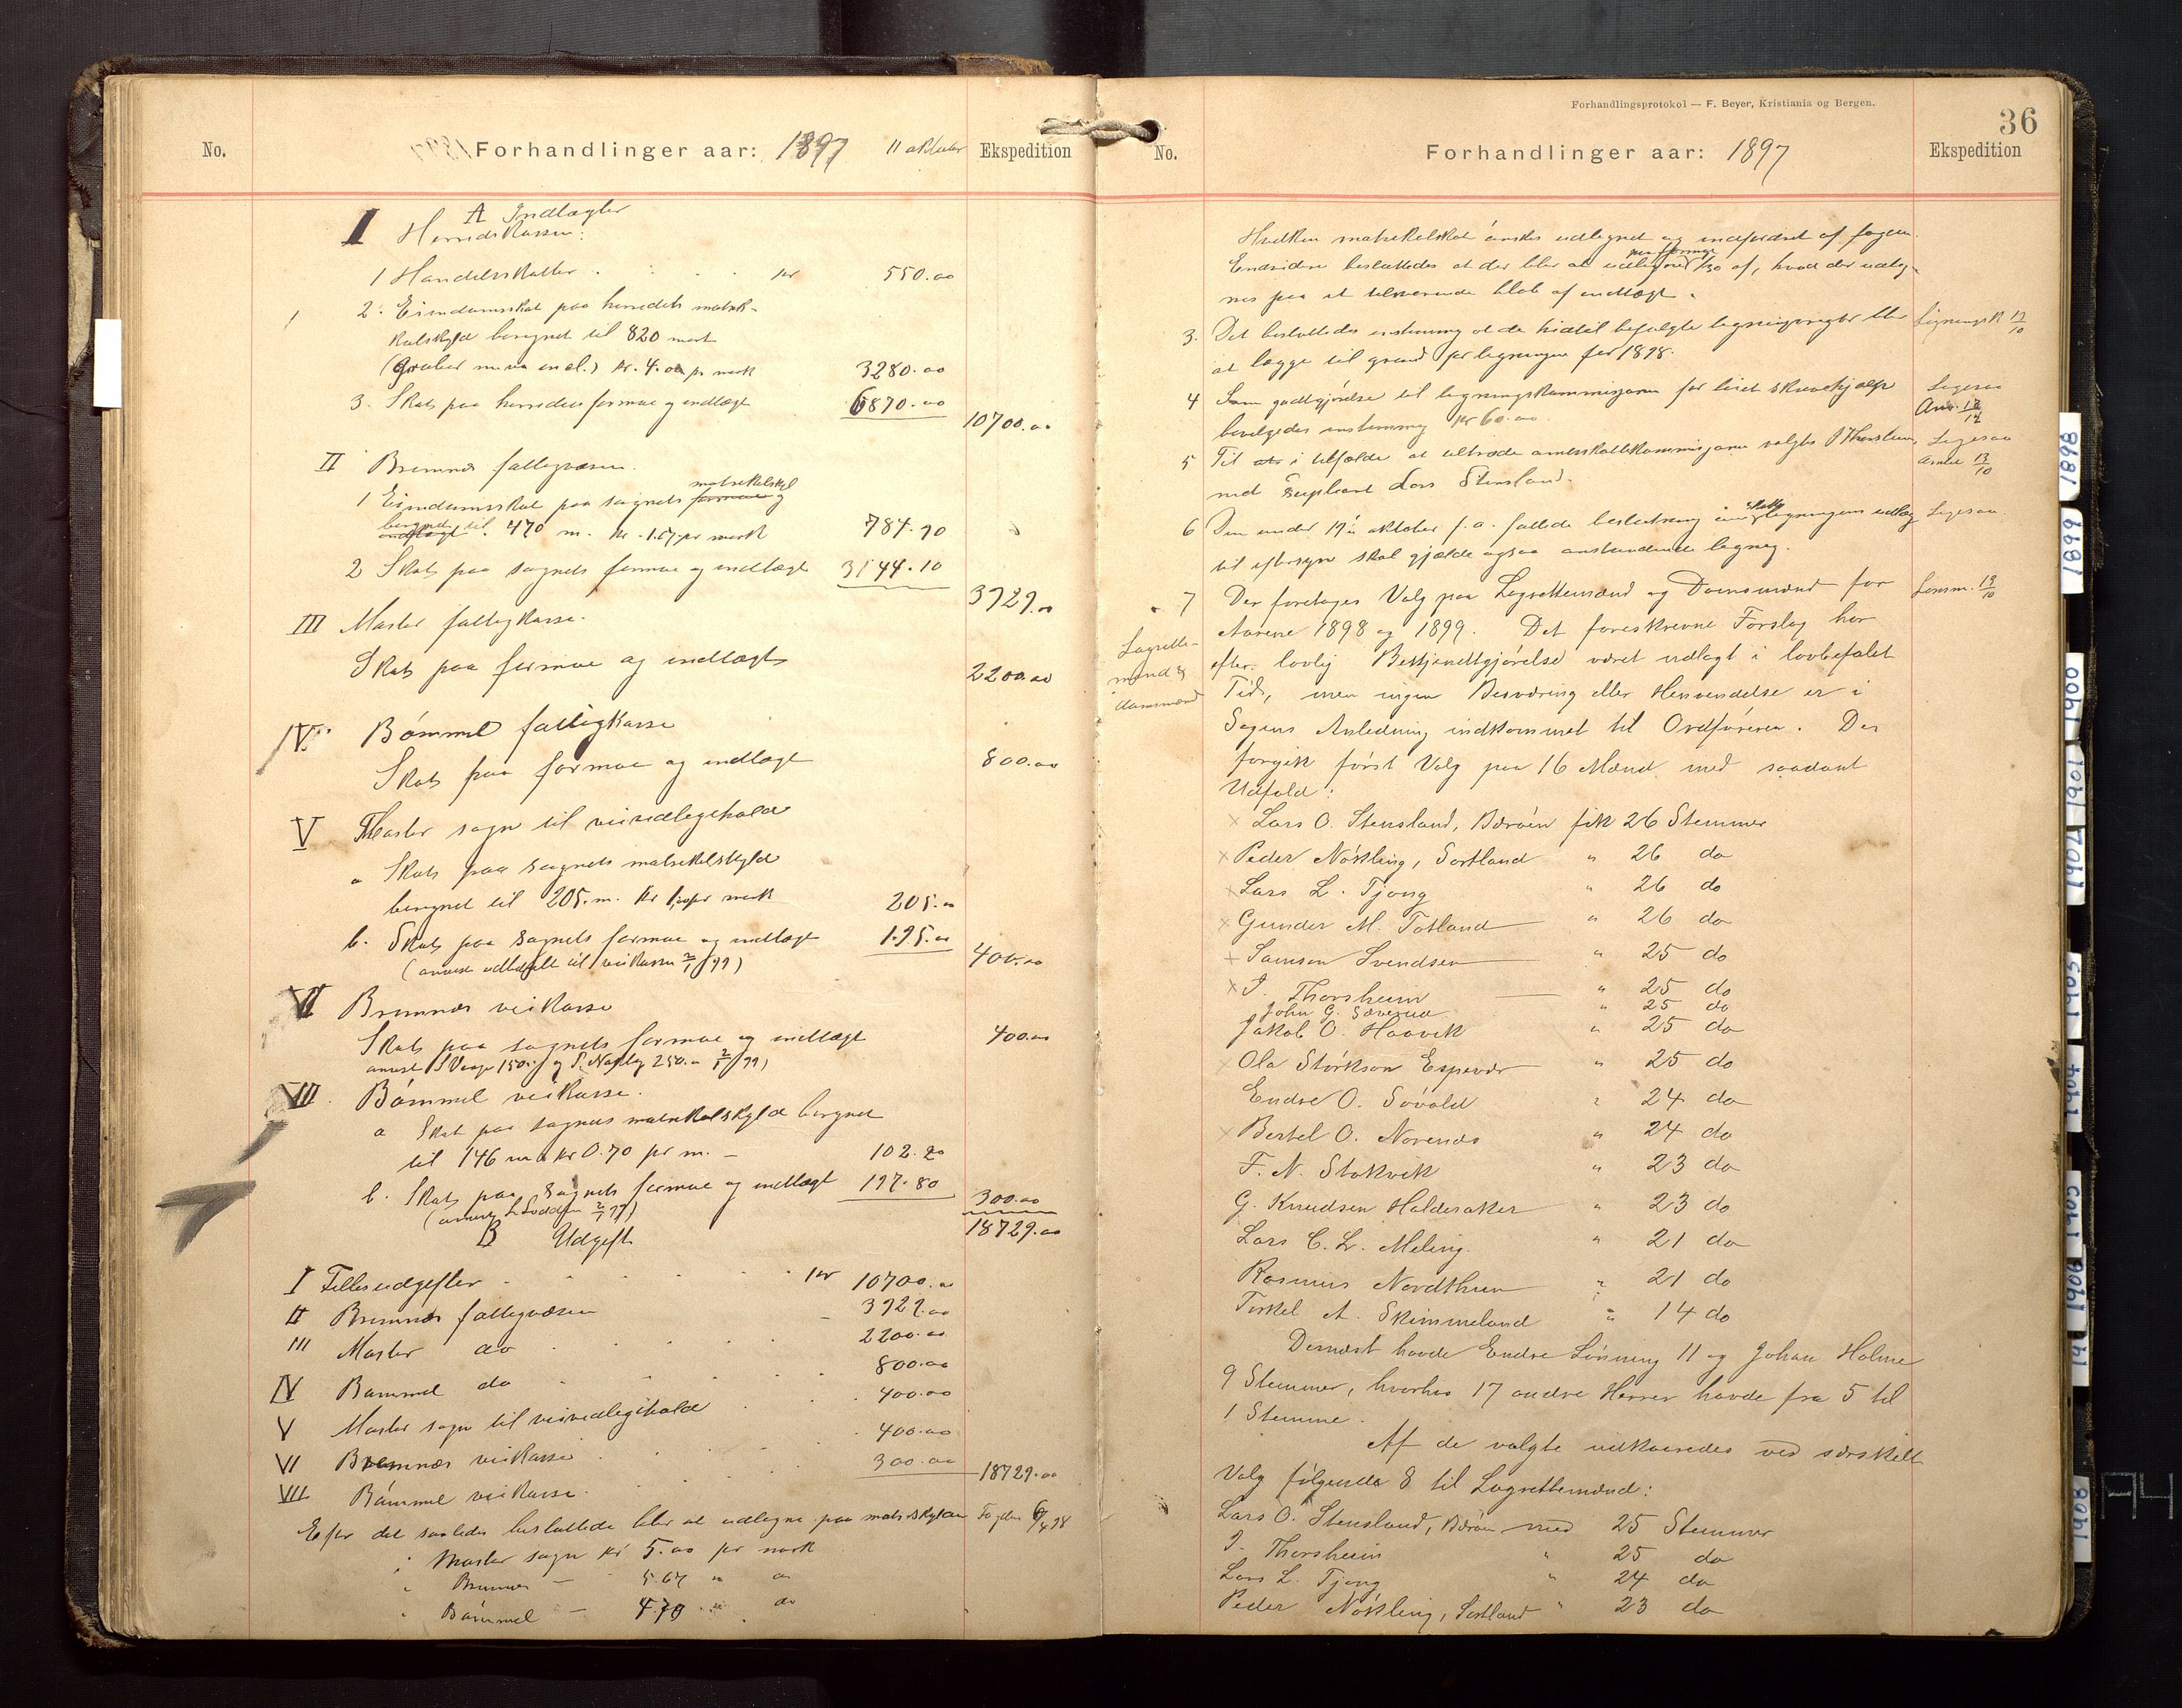 No. Forhandlinger aar: 1897 11 oktober Ekspedition
A Indtægter
I Herredskassen:
1 Handelsskatter . . . . kr 550.00
2. Eiendomsskat paa herredets matrik-
kulskyld beregnet til 820 mark
(Gruber m.m. incl.) kr. 4.00 pr mark 3280.00
3. Skat paa herredets formue og indtægt 6870.00
10700.00
II Bremnes fattigvæsen.
1 Eiendomsskat paa sognets formue og matrikelskyld
indtægt beregnet til 470 m. kr. 1.67 pr mark 784.90
2 Skat paa sognets formue og indtægt 3144.10
3929.00
III Moster fattigkasse.
Skat paa formue og indtægt 2200.00
IV Bömmel fattigkasse
Skat paa formue og indtægt 800.00
V Moster sogn til veivedligehold
a Skat paa sognets matrikelskyld
beregnet til 205. m. kr 1,00 pr mark 205.00
b. Skat paa sognets formue og indtægt 195.00
400.00
(anvist udbetalt til veikassen 2/1 99)
VI Bremnes veikasse
Skat paa sognets formue og indtægt 400.00
VII. Bömmel veikasse.
a Skat paa sognets matrikelskyld beregnet
til 146 m a kr 0.70 pr m. - 102.20
b. Skat paa sognets formue og indtægt 197.80
300.00
18729.00
B Udgift
I Fellesudgifter . . . . kr 10700.00
II Bremnes fattigvæsen 3929.00
III Moster do 2200.00
IV Bömmel do 800.00
V Moster sogn til veivedligehold 400.00
VI Bremnes veikasse 400.00
VII Bömmel veikasse. 300.00 18729.00
Efter det saaledes besluttede blir at udlegne paa matr.skylden Fogden 6/4 98
i Moster sogn kr 5.00 pr mark
" Bremnes - 5.67 " do
" Bömmel - 4.70 " do
Forhandlingsprotokol — F. Beyer, Kristiania og Bergen.
36
No. Forhandlinger aar: 1897 Ekspedition
Hvilken matrikelskat önskes udlignet og indfordret af fogden.
Endvidere besluttedes at der blir at udligne 1/30 af, hvad der udlig-
nes paa et tilsvarende belöb af indtægt.
3. Det besluttedes enstemmig at de hidtil befulgte ligningsregler blir Ligningsk 13/10
at lægge til grund for ligningen for 1898.
4 Som godtgjörelse til ligningskommissjonen for leiet skrivehjælp
bevilgedes enstemmig kr 60.00
5 Til at i tilfælde at tiltræde amtsskattekommissjonen valgtes I Thorsheim
med Supleant Lars Stensland.
6 Den under 19de oktober f.a. fattede beslutning om skatteligningens udlæg
til eftersyn skal gjælde ogsaa anstundende ligning.
7 Der foretoges Valg paa Lagrettemænd og Domsmænd for Lensm. 13/10
Lagrette-
mænd &
domsmænd
Aarene 1898 og 1899. Det foreskrevne Forslag har
efter lovlig Bekjendtgjörelse været udlagt i lovbefalet
Tid, men ingen Besværing eller Henvendelse er i
Sagens Anledning indkommet til Ordföreren. Der
foregik först Valg paa 16 Mænd med saadant
Udfald:
x Lars O. Stensland, Bæröen fik 26 Stemmer
x Peder Nökling, Sortland " 26 do
x Lars L. Tjong " 26 do
x Gunder M. Totland " 26 do
x Samson Svendsen " 25 do
x I. Thorsheim " 25 do
John G. Sæverud " 25 do
Jakob O. Haavik " 25 do
x Ola Störkson Espevær " 25 do
Endre O. Sövold " 24 do
x Bertel O. Novenes " 24 do
F. N. Stokvik " 23 do
G. Knudsen Halderaker " 23 do
Lars C. L. Meling. " 21 do
Rasmus Nordthun " 21 do
Torkel A. Skimmeland " 14 do
Dernæst havde Endre Lönning 11 og Johan Holme
9 Stemmer, hvorhos 17 andre Herrer havde fra 5 til
1 Stemme.
Af de valgte udkaaredes ved særskilt
Valg fölgende 8 til Lagrettemænd:
Lars O. Stensland, Bæröen med 25 Stemmer
I. Thorsheim " 25 do
Lars L. Tjong " 24 do
Peder Nökling, Sortland " 23 do
1898
1899
1900
1901
1902
1903
1904
1905
1906
1908